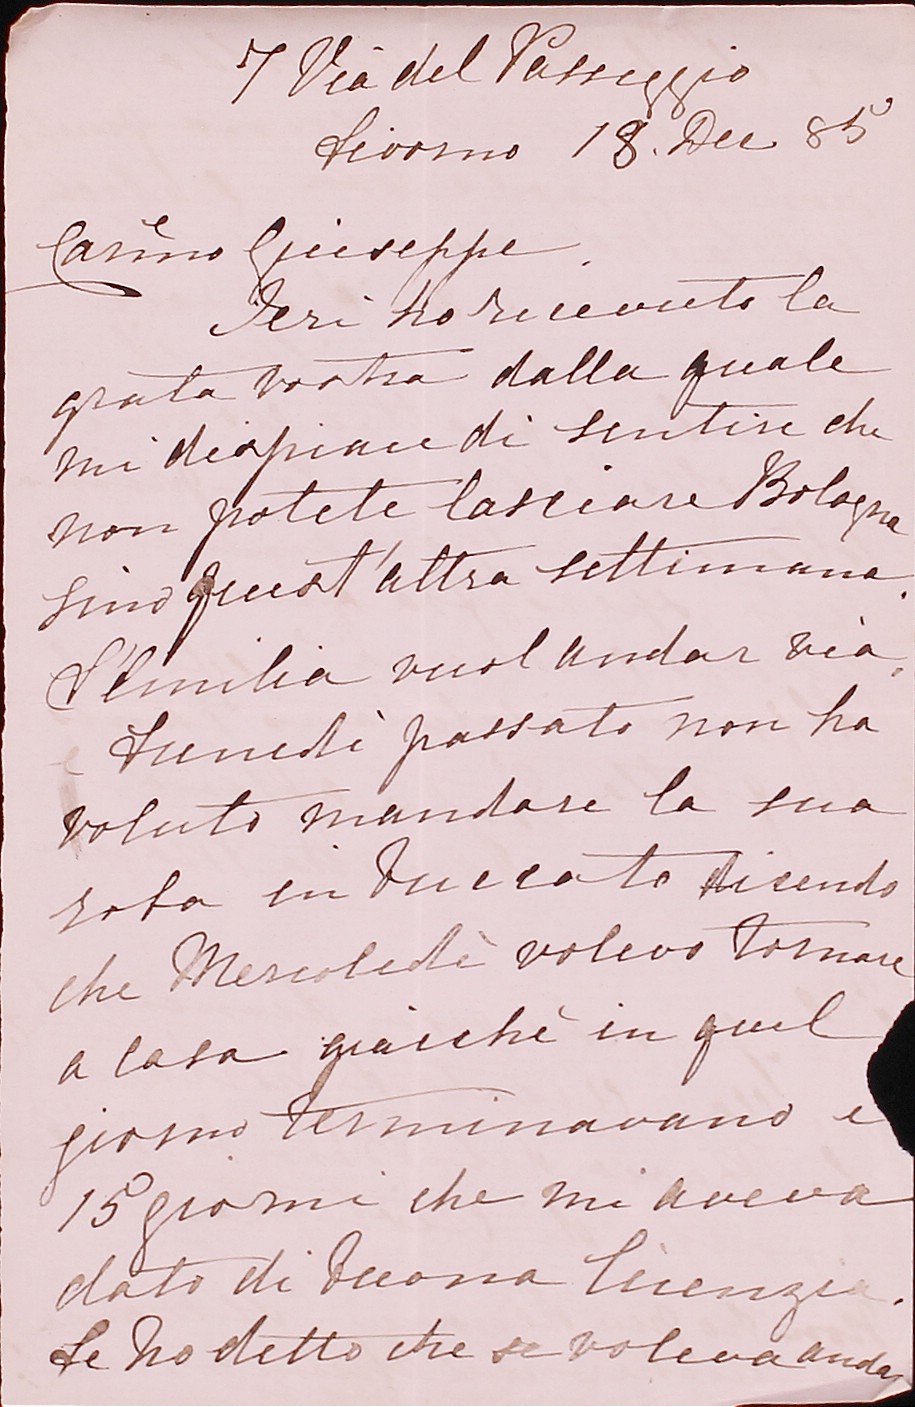 7 Via del Passeggio
Livorno 18. Dec 85
Carimo Giuseppe.
Ieri ho ricevuto la
grata vostra dalla quale
mi dispiace di sentire che
non potete lasciare Bologna
sino quest'altra settimana.
L'Emilia vuol andar via,
e Lunedì passato non ha
voluto mandare la sua
roba in bucato dicendo
che Mercoledì voleva tornare
a casa giacchè in quel
giorno terminavano i
15 giorni che mi aveva
dato di buona licenzia.
Le ho detto che se voleva andar